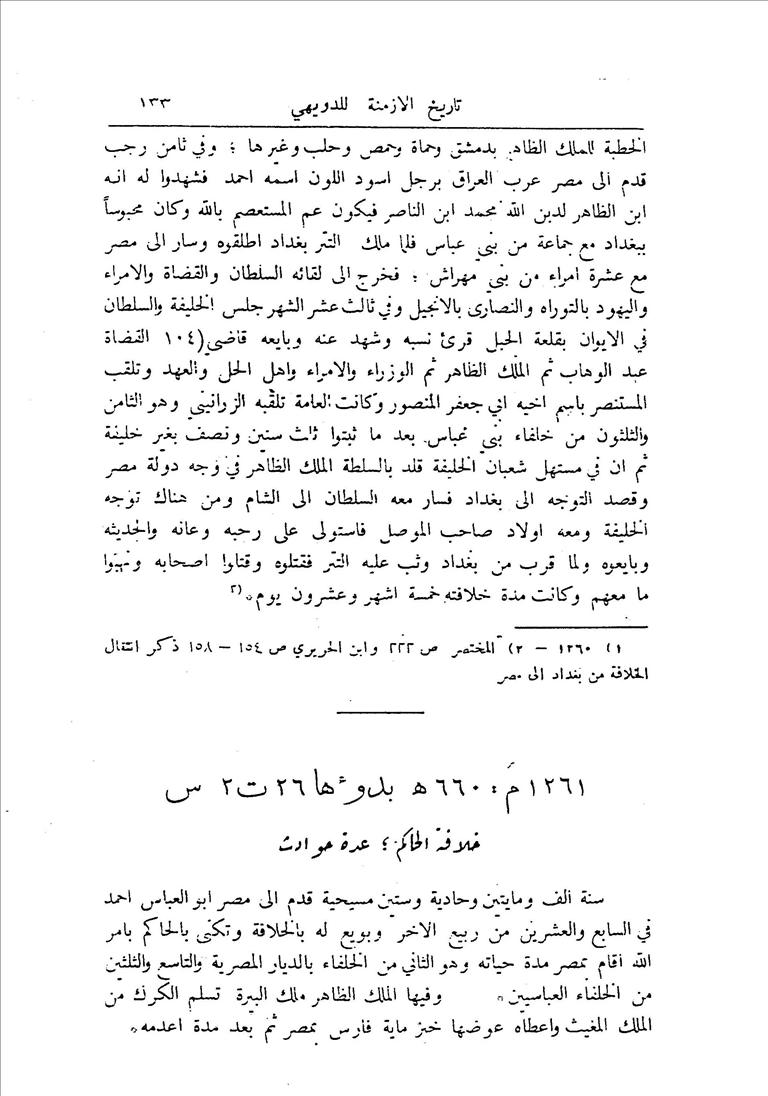 تاريخ الازمنة للدويهي ١٣٣
الخطبة للملك الظاهر بدمشق وحماة وحمص وحلب وغيرها ؛ وفي ثامن رجب
قدم الى مصر عرب العراق برجل اسود اللون اسمه احمد فشهدوا له انه
ابن الظاهر لدين الله محمد ابن الناصر فيكون عم المستعصم بالله وكان محبوساً
ببغداد مع جماعة من بني عباس فلما ملك التتر بغداد اطلقوه وسار الى مصر
مع عشرة امراء من بني مهراش ؛ فخرج الى لقائه السلطان والقضاة والامراء
واليهود بالتوراه والنصارى بالانجيل وفي ثالث عشر الشهر جلس الخليفة والسلطان
في الايوان بقلعة الجبل قرئ نسبه وشهد عنه وبايعه قاضي (١٠٤ القضاة
عبد الوهاب ثم الملك الظاهر ثم الوزراء والامراء واهل الحل والعهد وتلقب
المستنصر باسم اخيه ابي جعفر المنصور وكانت العامة تلقبه الزرانيني وهو الثامن
والثلثون من خلفاء بني عباس. بعد ما ثبتوا ثالث سنين ونصف بغير خليفة
ثم ان في مستهل شعبان الخليفة قلد بالسلطة الملك الظاهر في وجه دولة مصر
وقصد التوجه الى بغداد فسار معه السلطان الى الشام ومن هناك توجه
الخليفة ومعه اولاد صاحب الموصل فاستولى على رحبه وعانه والحديثه
وبايعوه ولما قرب من بغداد وثب عليه التتر فقتلوه وقتلوا اصحابه ونهبوا
ما معهم وكانت مدة خلافته خمسة اشهر وعشرون يوم. (٢
١) ١٢٦٠ – ٢) المختصر ص ٢٢٢ وابن الحريري ص ١٥٤ – ١٥٨ ذكر انتقال
الخلافة من بغداد الى مصر
١٢٦١ م : ٦٦٠ ه بدوءها ٢٦ ت٢ س
خلافة الحاكم ؛ عدة حوادث
سنة الف ومايتين وحادية وستين مسيحية قدم الى مصر ابو العباس احمد
في السابع والعشرين من ربيع الاخر وبويع له بالخلافة وتكنى بالحاكم بامر
الله اقام بمصر مدة حياته وهو الثاني من الخلفاء بالديار المصرية والتاسع والثلثين
من الخلفاء العباسيين. وفيها الملك الظاهر ملك البيرة تسلم الكرك من
الملك المغيث واعطاه عوضها خبز ماية فارس بمصر ثم بعد مدة اعدمه.